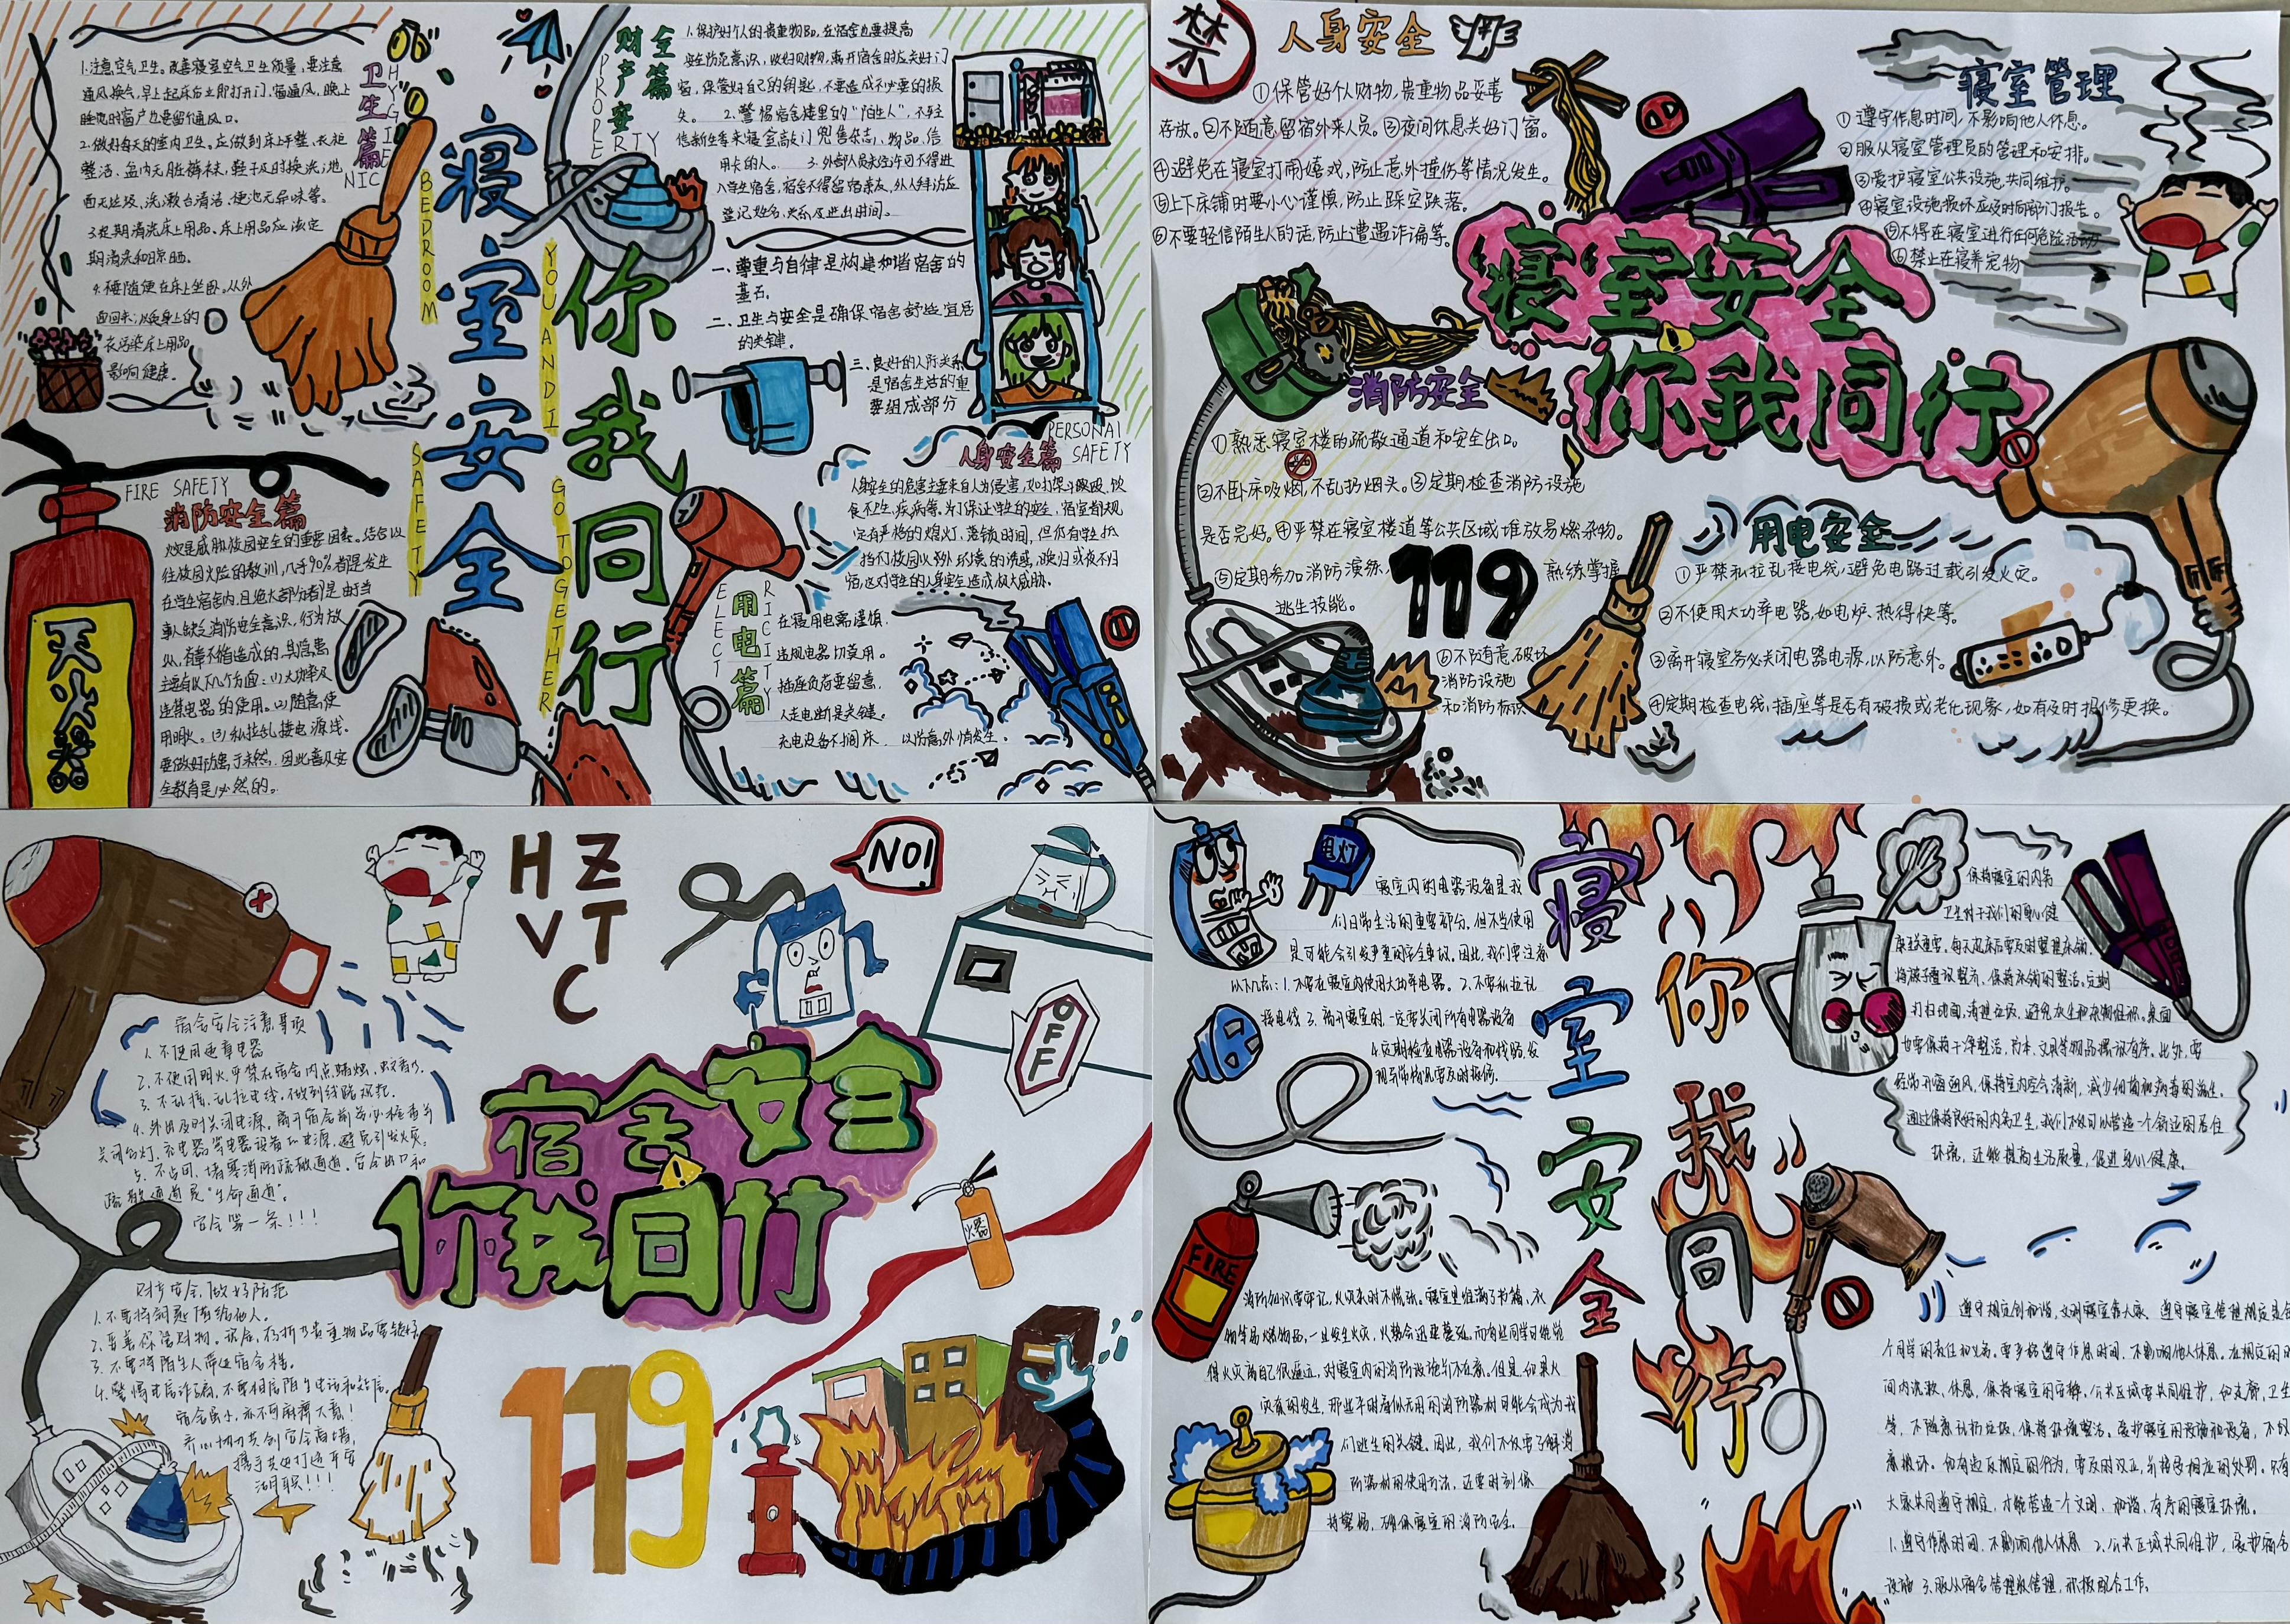 卫生篇
HYGIENIC
1.注意空气卫生。改善寝室空气卫生质量,要注意
通风换气,早上起床后立即打开门、窗通风,晚上
睡觉时窗户也要留个通风口。
2.做好每天的室内卫生。应做到床上平整、衣柜
整洁、
3.定期清洗床上用品、床上用品应该定
期清洗和晾晒。
4.不要随便在床上坐卧。从外
面回来,
衣污染床上用品
影响健康。
寝室安全
你我同行
BEDROOM
SAFETY
YOU AND I
GO TOGETHER
财产安全篇
PROPERTY
1.保护好个人的贵重物品,在宿舍也要提高
安全防范意识,收好财物,离开宿舍时应关好门
窗,保管好自己的钥匙,不要造成不必要的损
失。 2.警惕宿舍楼里的“陌生人”,不轻
信新生季来寝室敲门兜售杂志、物品、信
用卡的人。 3.外部人员未经许可不得进
入学生宿舍,宿舍不得留宿亲友,外人拜访应
登记姓名、关系及进出时间。
一、尊重与自律是构建和谐宿舍的
基石。
二、卫生与安全是确保宿舍舒适宜居
的关键。
三、良好的人际关系
是宿舍生活的重
要组成部分
PERSONAL
SAFETY
人身安全篇
人身安全的危害主要来自人为侵害,如打架斗殴、饮
食不卫生、疾病等。为了保证学生的安全,宿室都规
定有严格的熄灯、落锁时间,但仍有学生
宿,这对学生的人身安全造成极大威胁。
FIRE SAFETY
消防安全篇
火灾是威胁校园安全的重要因素。结合以
往校园火险的教训,几乎90%都是发生
在学生宿舍内,且绝大部分都是由于当
事人缺乏消防安全意识、行为放
从,有章不循造成的。具隐患
主要有以下几个方面:(1)大功率及
违禁电器的使用。(2)随意使
用明火。(3)私拉乱接电源线。
要做好防患于未然,因此普及安
全教育是必然的。
灭火器
ELECTRICITY
用电篇
在寝用电需谨慎.
违规电器切莫用.
插座负后要留意.
人走电断是关键.
充电设备不搁床, 以防意外情发生.
禁
人身安全
①保管好个人财物,贵重物品妥善
存放。②不随意留宿外来人员。③夜间休息关好门窗。
④避免在寝室打闹嬉戏,防止意外撞伤等情况发生。
⑤上下床铺时要小心谨慎,防止踩空跌落。
⑥不要轻信陌生人的话,防止遭遇诈骗等。
寝室管理
①遵守作息时间,不影响他人休息。
②服从寝室管理员的管理和安排。
③爱护寝室公共设施,共同维护。
④寝室设施损坏应及时向部门报告。
⑤不得在寝室进行任何危险活动
⑥禁止在寝养宠物
寝室安全
你我同行
消防安全
①熟悉寝室楼的疏散通道和安全出口。
②不卧床吸烟,不乱扔烟头。③定期检查消防设施
是否完好。④严禁在寝室楼道等公共区域堆放易燃杂物。
⑤定期参加消防演练, 119 熟练掌握
逃生技能。
⑥不随意破坏
消防设施
和消防标识
用电安全
①严禁私拉乱接电线,避免电路过载引发火灾。
②不使用大功率电器,如电炉、热得快等。
③离开寝室务必关闭电器电源,以防意外。
④定期检查电线,插座等是否有破损或老化现象,如有及时报修更换。
HZ
VT
C
NO!
OFF
宿舍安全
你我同行
宿舍安全注意事项
1.不使用违章电器
2.不使用明火,严禁在宿舍内点蜡烛、蚊香等.
3.不乱接、乱拉电线,做到线路规范.
4.外出及时关闭电源。离开宿舍前务必检查并
关闭台灯、充电器等电器设备和电源,避免引发火灾。
5.不占用、堵塞消防疏散通道,安全出口和
疏散通道是“生命通道”。
安全第一条!!!
财产安全,做好防范
1.不要将钥匙借给他人。
2.妥善保管财物。
3.不要将陌生人带进宿舍楼。
4.警惕电信诈骗,不要相信陌生电话和短信。
宿舍虽小,亦不可麻痹大意!
齐心协力共创安全高墙,
携手共处打造平安
119
火器
寝室安全
你我同行
电灯
寝室内的电器设备是我
们日常生活的重要部分,但不当使用
是可能会引发严重的安全事故。因此,我们要注意
以下几点:1.不要在寝室内使用大功率电器。2.不要私拉乱
接电线 3.离开寝室时,一定要关闭所有电器设备
4.定期检查电器设备和线路,发
现异常情况要及时报修.
保持寝室的内务
卫生对于我们的身心健
康至关重要。每天起床后要及时整理床铺,
将被子叠放整齐,保持床铺的整洁。定期
打扫地面,清理垃圾,避免灰尘和杂物堆积。桌面
也要保持干净整洁,书本、文具等物品摆放有序。此外,要
经常开窗通风,保持室内空气清新,减少细菌和病毒的滋生。
通过保持良好的内务卫生,我们不仅可以营造一个舒适的居住
环境,还能提高生活质量,促进身心健康。
FIRE
消防知识要牢记,火灾来时不慌张。寝室里堆满了书籍、衣
物等易燃物品,一旦发生火灾,火势会迅速蔓延。而有些同学可能觉
得火灾离自己很遥远,对寝室内的消防设施并不在意。但是,如果火
灾真的发生,那些平时看似无用的消防器材可能会成为我
们逃生的关键。因此,我们不仅要了解消
防器材的使用方法,还要时刻保
持警惕,确保寝室的消防安全。
遵守规定创和谐,文明寝室靠大家。遵守寝室管理规定是每
个同学的责任和义务。要严格遵守作息时间,不影响他人休息。在规定的时
间内洗漱、休息,保持寝室的安静。公共区域要共同维护,如走廊、卫生
等,不随意乱扔垃圾,保持环境整洁。爱护寝室的设施和设备,不故
意损坏。如有违反规定的行为,要及时改正,并接受相应的处罚。只有
大家共同遵守规定,才能营造一个文明、和谐、有序的寝室环境。
1.遵守作息时间,不影响他人休息 2.公共区域共同维护,爱护宿舍
设施 3.服从宿舍管理员管理,积极配合工作。